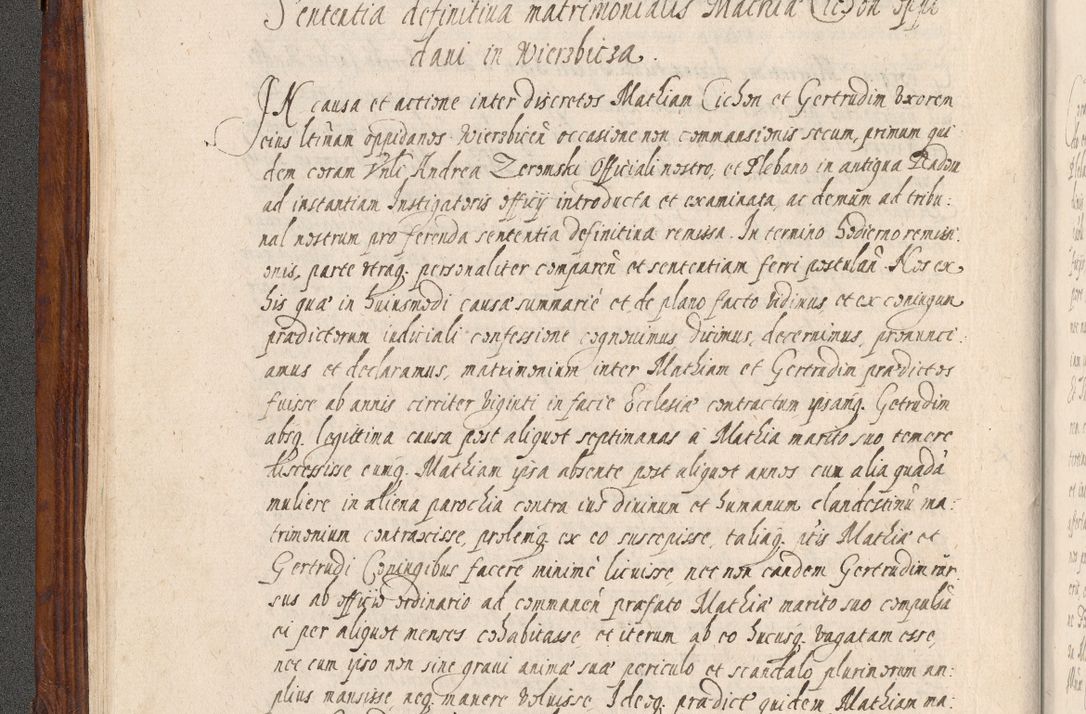 Sententia definitiua matrimonialis Mathia Cichon oppi
dani in Wierzbicza.
IN causa et actione inter discretos Mathiam Cichon et Gertrudim Vxorem
eius ltīmam oppidanos Wierzbiceñ occasione non commansionis secum, primum qui
dem coram Vnli Andrea Zeromski Officiali nostro, et Plebano in antiqua Radom
ad instantiam Instigatoris officij introducta et examinata, ac demum ad tribu:
nal nostrum pro ferenda sententia definitiua remissa. In termino hodierno remissi:
onis, parte vtraq. personaliter compareñ et sententiam ferri postulañ. Nos ex
his quæ in huiusmodi causa summarié et de plano facto vidimus et ex coniugum
prædictorum iudiciali confessione cognouimus dicimus, decernimus, pronunci:
amus et declaramus, matrimonium inter Mathiam et Gertrudim prædictos
fuisse ab annis circiter viginti in facie Ecclesiæ contractum ipsamq. Getrudim
absq. legittima causa post aliquot septimanas à Mathia marito suo temere
discessisse eumq. Mathiam ipsa absente post aliquot annos cum alia quadã
muliere in aliena parochia contra ius diuinum et humanum clandestinũ ma:
trimonium contraxisse, prolemq. ex eo suscepisse, taliaq. ptis Mathiæ et
Gertrudi Coniugibus facere minimè licuisse nec non eandem Gertrudim rur
sus ab officio ordinario ad commaneñ præfato Mathiæ marito suo compulsã
ei per aliquot menses cohabitasse, et iterum ab eo hucusq. vagatam esse,
nec cum ipso non sine graui animæ suæ periculo et scandalo plurimorum am:
plius mansisse neq. manere voluisse. Ideoq. prædict quidem Mathiam ma: